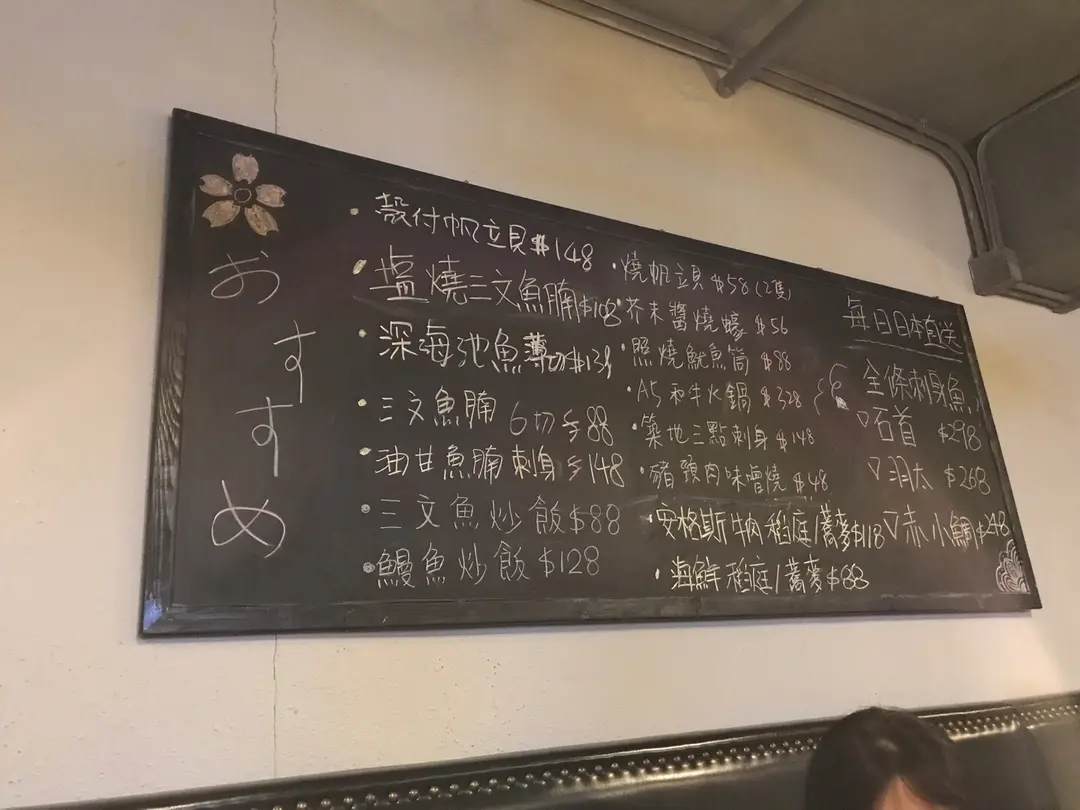 おすすめ
・殻付帆立貝$148
・塩燒三文魚腩$108
・深海池魚薄切$138
・三文魚腩 6切 $88
・油甘魚腩刺身 $148
・三文魚炒飯$88
・鰻魚炒飯 $128
・燒帆立貝 $58(2隻)
・芥末醬燒蠔 $56
・照燒魷魚筒 $88
・A5和牛火鍋 $328
・築地三點刺身 $148
・豬頸肉味噌燒 $48
・安格斯牛肉稻庭/蕎麥$118
・海鮮稻庭/蕎麥$88
每日日本直送
全條刺身魚
▽石首 $298
▽羽太 $268
▽赤小鯛 $248